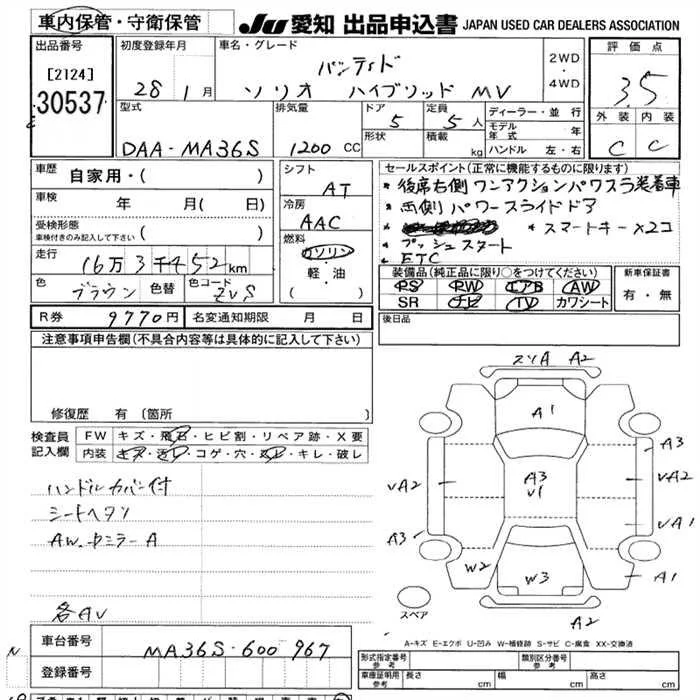 車内保管・守衛保管
JU 愛知 出品申込書 JAPAN USED CAR DEALERS ASSOCIATION
出品番号
[2124]
30537
初度登録年月
28年 1月
車名・グレード
バンディド
ソリオ ハイブリッド MV
2WD
・
4WD
評価点
3.5
外装 内装
C C
型式
DAA-MA36S
排気量
1200 CC
ドア
5
形状
定員
5人
積載
kg
ディーラー・並行
モデル年式 年
ハンドル 左・右
車歴
自家用・( )
車検
年 月( 日)
受検形態
車検付きのみ記入して下さい ( )
走行
16万3千452km
色
ブラウン
色替
色コード
ZVS
シフト
AT
冷房
AAC
燃料
ガソリン
軽・油
( )
セールスポイント(正常に機能するものに限ります)
* 後席右側 ワンアクションパワスラ装着車
* 両側 パワースライドドア
* スマートキー×2コ
* プッシュスタート
* ETC
装備品(純正品に限り○をつけてください)
PS PW エアB AW
SR ナビ TV カワシート
新車保証書
有・無
R券 9770円
名変通知期限 月 日
後日品
注意事項申告欄(不具合内容等は具体的に記入して下さい)
修復歴 有(箇所 )
検査員記入欄
FW キズ・飛石・ヒビ割・リペア跡・X要
内装 キズ・汚レ・コゲ・穴・スレ・キレ・破レ
ハンドルカバー付
シートヘタリ
AW.ドミラーA
各AV
スリA A2
A1
A3
V1
VA2
A3
A3
VA2
VA1
A1
W2
W3
A2
スペア
A-キズ E-エクボ U-凹み W-補修跡 S-サビ C-腐食 XX-交換済
車台番号
MA36S-600967
登録番号
形式指定番号
参考
類別区分番号
参考
車庫証明用
参考
長さ cm
幅 cm
高さ cm